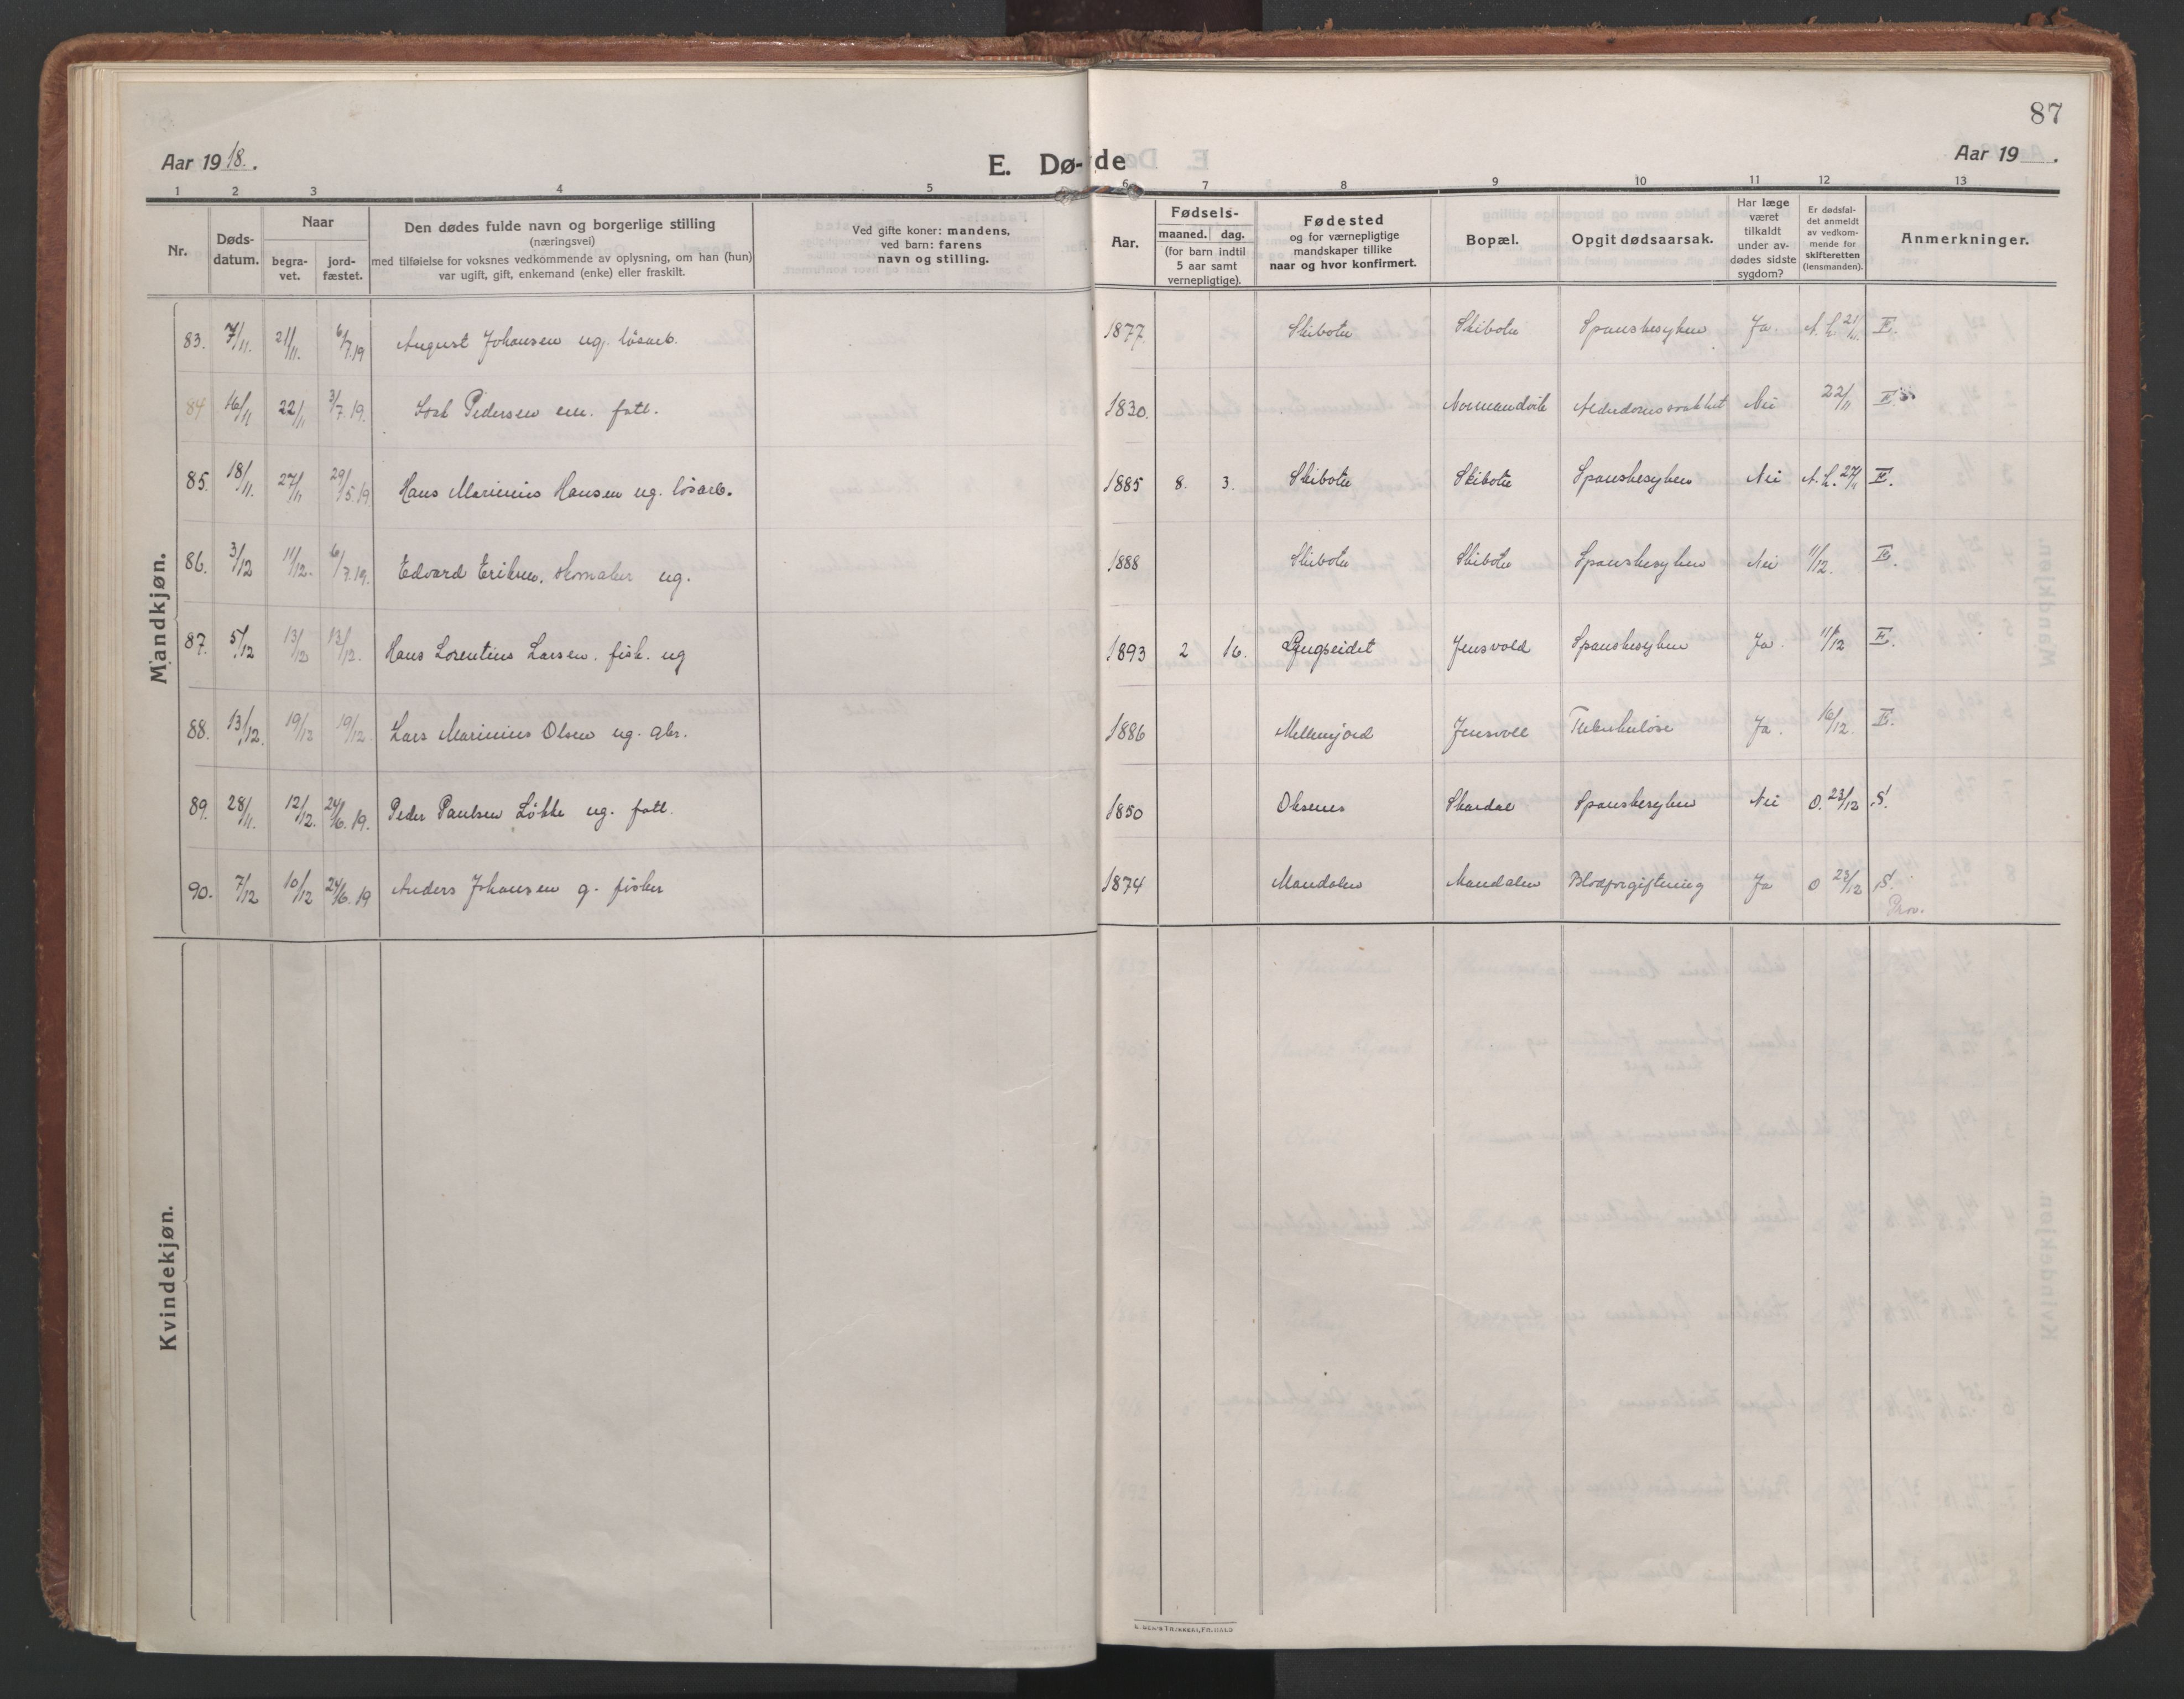 87
Aar 1918. E. Dø-de Aar 19 .
1 2 3 4 5 6 7 8 9 10 11 12 13
Nr. Døds-datum. Naar begra-vet. jord-fæstet. Den dødes fulde navn og borgerlige stilling (næringsvei) med tilføielse for voksnes vedkommende av oplysning, om han (hun) var ugift, gift, enkemand (enke) eller fraskilt. Ved gifte koner: mandens, ved barn: farens navn og stilling. Aar. Fødsels- maaned. dag. (for barn indtil 5 aar samt vernepligtige). Fødested og for værnepligtige mandskaper tillike naar og hvor konfirmert. Bopæl. Opgit dødsaarsak. Har læge været tilkaldt under av-dødes sidste sygdom? Er dødsfal-det anmeldt av vedkom-mende for skifteretten (lensmanden). Anmerkninger.
Mandkjøn.
83. 7/11. 21/11. 6/7.19 August Johansen ug. løsarb. 1877. Skibotn Skibotn Spanskesyken Ja. A. L. 21/11. E.
84 16/11 22/11 3/7.19. Pedersen em. fatt. 1830. Normandvik Alderdomssvakhet Nei 22/11 E.
85. 18/11. 27/11 29/5.19 Hans Marinius Hansen ug. løsarb. 1885 8. 3. Skibotn Skibotn Spanskesyken Nei A. L. 27/11 E.
86. 3/12 11/12. 6/7.19. Edvard Eriksen, skomaker ug. 1888 Skibotn Skibotn Spanskesyken Nei 11/12. E.
87. 5/12 13/12 13/12. Hans Lorentius Larsen. fisk. ug 1893 2 16. Lyngseidet Jensvold Spanskesyken Ja. 11/12 E.
88. 13/12. 19/12 19/12. Lars Marinius Olsen ug. gbr. 1886 Mellemjord Jensvoll Tuberkuløse Ja. 16/12. E.
89. 28/11. 12/12. 24/6.19. Peder Paulsen Løkke ug. fatt. 1850 Oksenes Skardal Spanskesyken Nei O. 23/12 S.
90. 7/12 10/12 24/6.19 Anders Johansen g. fisker 1874 Mandalen Mandalen Blodforgiftning Ja O 23/12 S.
Prov.
Kvindekjøn.